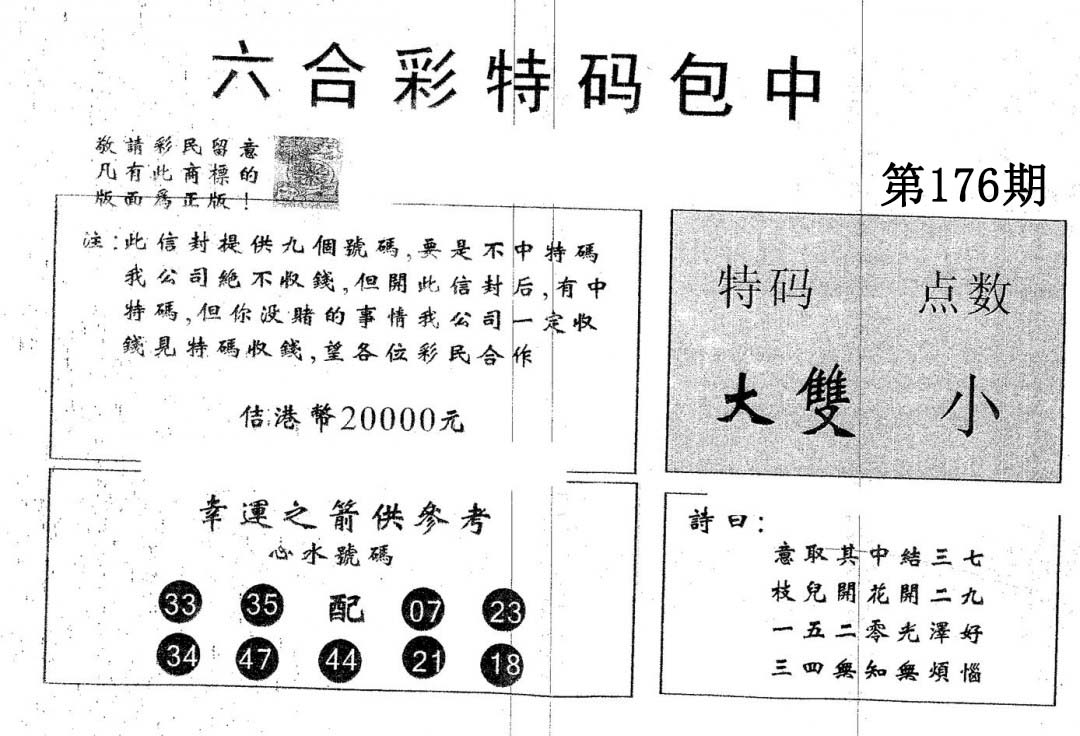 六合彩特码包中
敬請彩民留意
凡有此商標的
版面爲正版！
第176期
注：此信封提供九個號碼,要是不中特碼
我公司絶不收錢,但開此信封后,有中
特碼,但你没賭的事情我公司一定收
錢見特碼收錢,望各位彩民合作
佶港幣20000元
特码 点数
大雙 小
幸運之箭供參考
心水號碼
33 35 配 07 23
34 47 44 21 18
詩曰：
意取其中結三七
枝兒開花開二九
一五二零光澤好
三四無知無煩惱